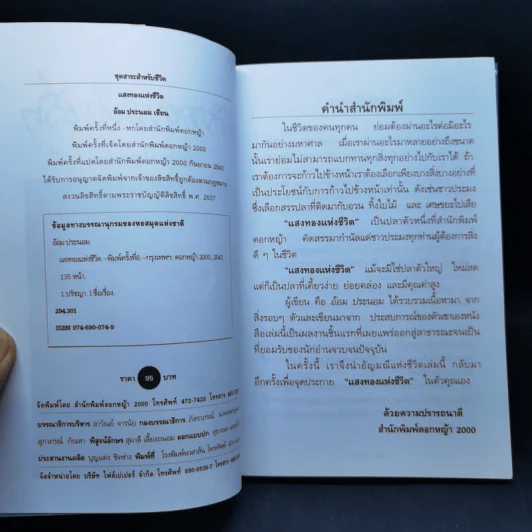 ชุดสาระสำหรับชีวิต
แสงทองแห่งชีวิต
อ้อม ประนอม เขียน
พิมพ์ครั้งที่หนึ่ง -หกโดยสำนักพิมพ์ดอกหญ้า
พิมพ์ครั้งที่เจ็ดโดยสำนักพิมพ์ดอกหญ้า 2000
พิมพ์ครั้งที่แปดโดยสำนักพิมพ์ดอกหญ้า 2000 กันยายน 2543
ได้รับการอนุญาตจัดพิมพ์จากเจ้าของลิขสิทธิ์ถูกต้องตามกฎหมาย
สงวนลิขสิทธิ์ตามพระราชบัญญัติลิขสิทธิ์ พ.ศ. 2537
ข้อมูลทางบรรณานุกรมของหอสมุดแห่งชาติ
อ้อม ประนอม.
แสงทองแห่งชีวิต.--พิมพ์ครั้งที่8.--กรุงเทพฯ: ดอกหญ้า 2000, 2543.
135 หน้า.
1.ปรัชญา. I.ชื่อเรื่อง.
294.301
ISBN 974-690-074-9
ราคา 95 บาท
จัดพิมพ์โดย สำนักพิมพ์ดอกหญ้า 2000 โทรศัพท์ 472-7420 โทรสาร
บรรณาธิการบริหาร ลาวัณย์ จารนัย กองบรรณาธิการ
สุภาภรณ์ กัณหา พิสูจน์อักษร สุมาลี เลี้ยงถนอม ออกแบบปก
ประสานงานผลิต บุญแต่ง ชิดช่าง พิมพ์ที่
จัดจำหน่ายโดย บริษัท โทรศัพท์
คำนำสำนักพิมพ์
ในชีวิตของคนทุกคน ย่อมต้องผ่านอะไรต่อมิอะไร
มากันอย่างมหาศาล เมื่อเราผ่านอะไรมาหลายอย่างถึงขนาด
นั้นเราย่อมไม่สามารถแบกทานทุกสิ่งทุกอย่างไปกับเราได้ ถ้า
เราต้องการจะก้าวไปข้างหน้าเราต้องเลือกเพียงบางสิ่งบางอย่างที่
เป็นประโยชน์กับการก้าวไปข้างหน้าเท่านั้น ดังเช่นชาวประมง
ซึ่งเลือกสรรปลาที่ติดมากับอวน ทิ้งใบไม้ และ เศษขยะไปเสีย
"แสงทองแห่งชีวิต" เป็นปลาตัวหนึ่งที่สำนักพิมพ์
ดอกหญ้า คัดสรรมากำนัลแด่ชาวประมงทุกท่านผู้ต้องการสิ่ง
ดี ๆ ในชีวิต
"แสงทองแห่งชีวิต" แม้จะมิใช่ปลาตัวใหญ่ ใหม่สด
แต่ก็เป็นปลาที่เคี้ยวง่าย ย่อยคล่อง และมีคุณค่าสูง
ผู้เขียน คือ อ้อม ประนอม ได้รวบรวมเนื้อหามา จาก
สิ่งรอบๆ ตัวและเขียนมาจาก ประสบการณ์ของตัวเขาเองหนัง
สือเล่มนี้เป็นผลงานชิ้นแรกที่เผยแพร่ออกสู่สาธารณะจนเป็น
ที่ยอมรับของนักอ่านจวบจนปัจจุบัน
ในครั้งนี้ เราจึงนำอัญมณีแห่งชีวิตเล่มนี้ กลับมา
อีกครั้งเพื่อจุดประกาย "แสงทองแห่งชีวิต" ในตัวคุณเอง
ด้วยความปรารถนาดี
สำนักพิมพ์ดอกหญ้า 2000